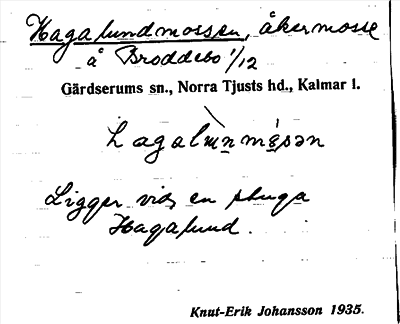 Hagalundmossen, åkermosse
å Broddebo 1/12
Gärdserums sn., Norra Tjusts hd., Kalmar l.
Ligger vid en stuga
Hagalund.
Knut-Erik Johansson 1935.